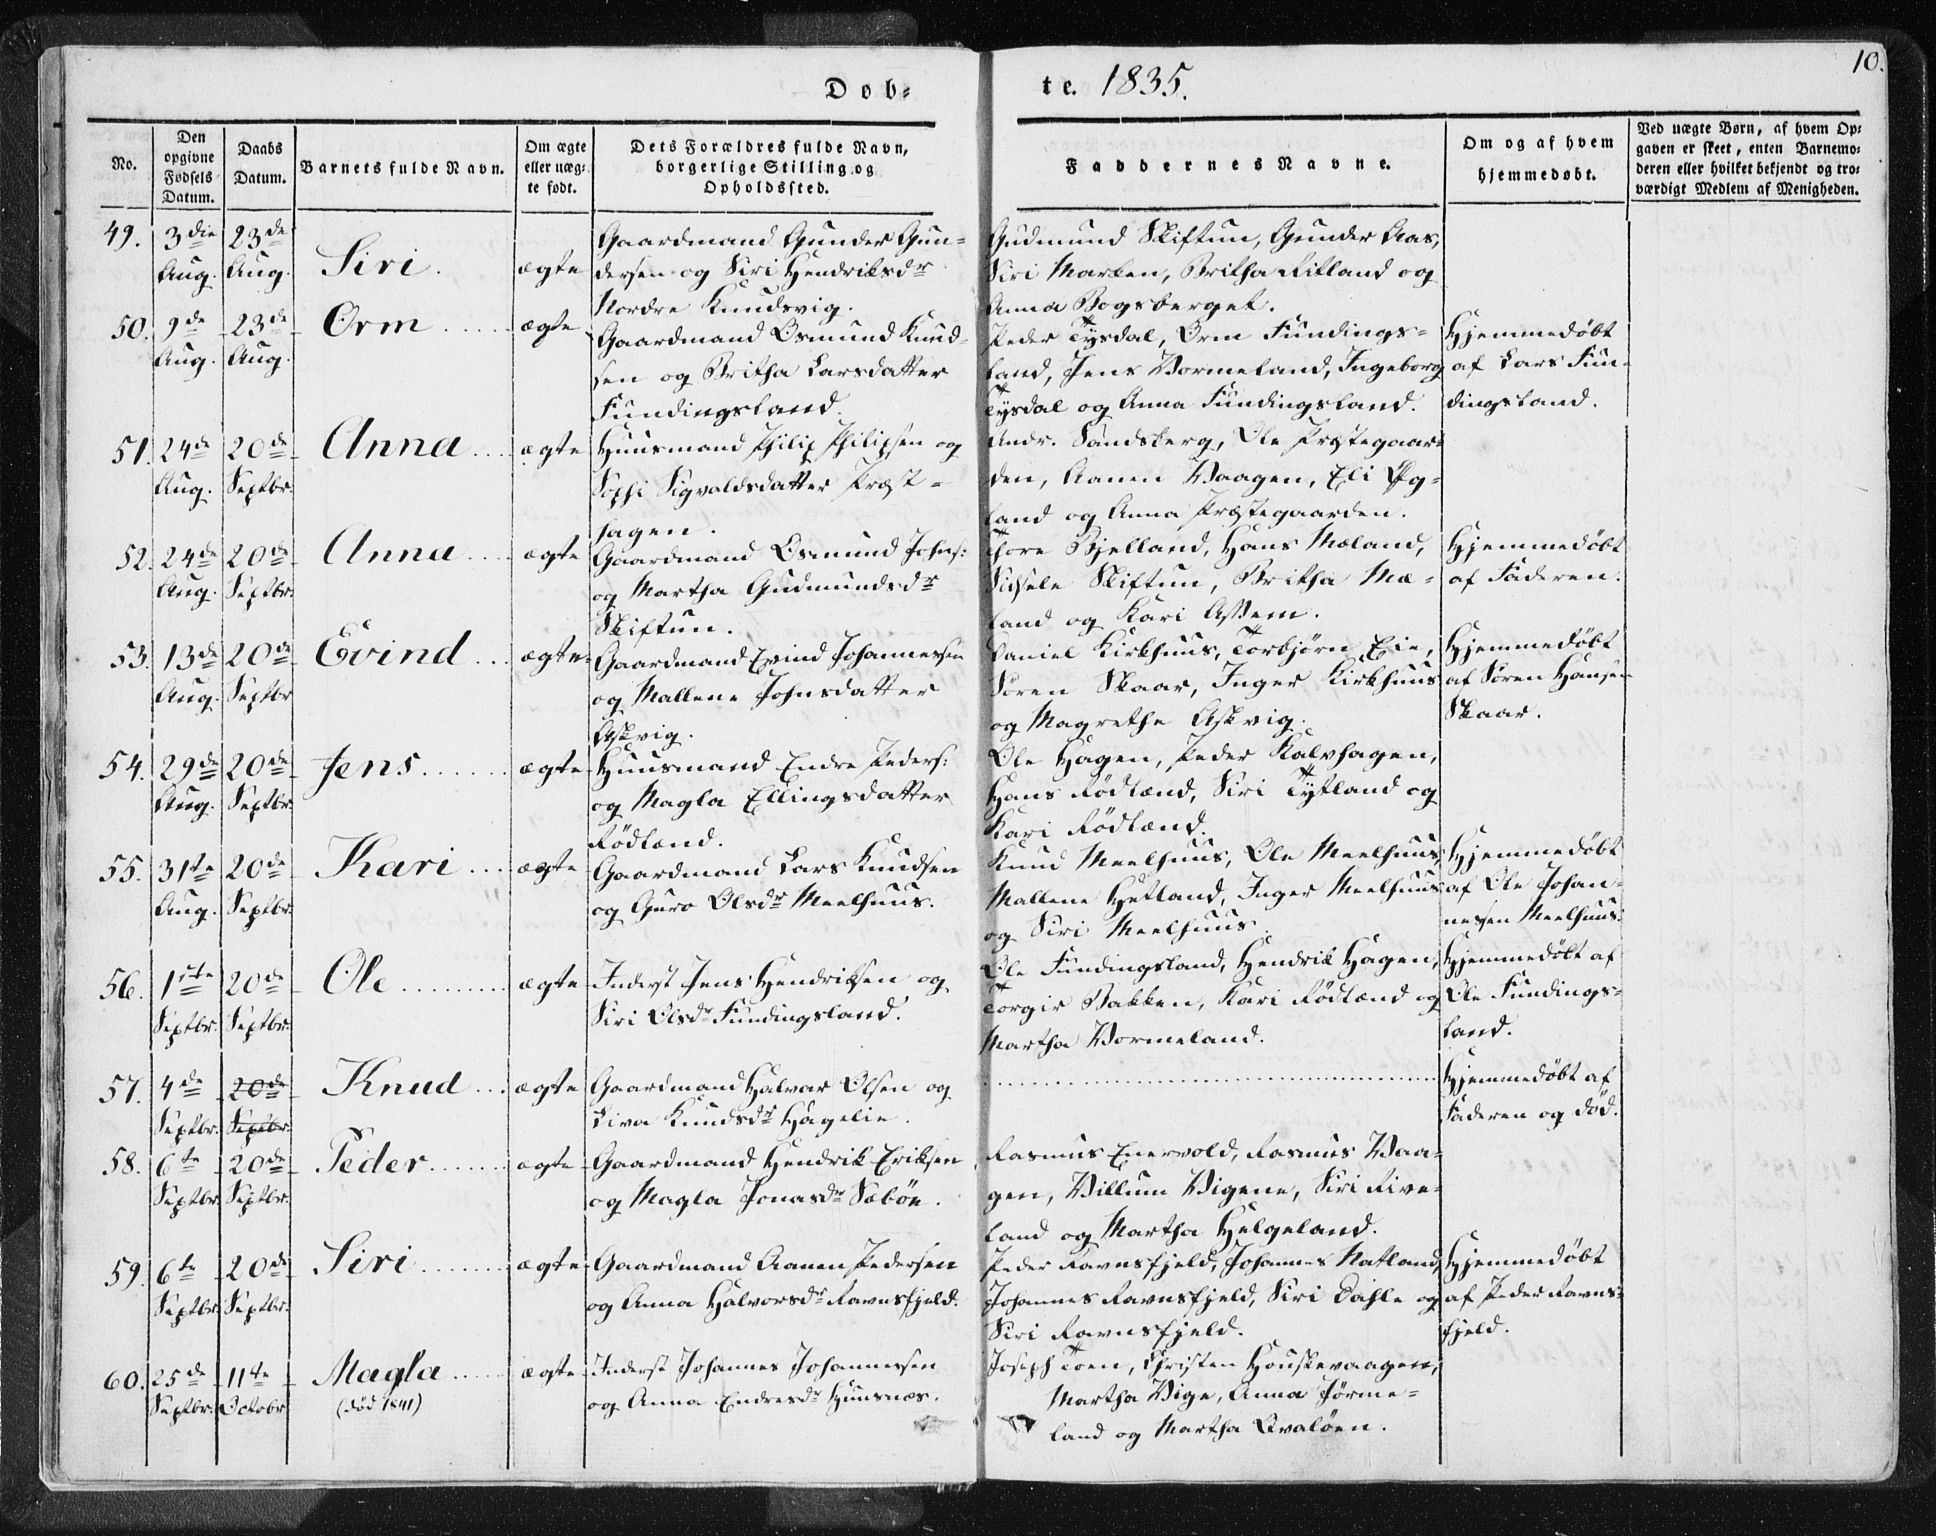 10.
Døb-
te. 1835.
No.
Den opgivne Fødsels Datum.
Daabs Datum.
Barnets fulde Navn.
Om ægte eller uægte født.
Dets Forældres fulde Navn, borgerlige Stilling og Opholdssted.
Faddernes Navne.
Om og af hvem hjemmedøbt.
Ved uægte Børn, af hvem Opgaven er skeet, enten Barnemoderen eller hvilket bekjendt og troværdigt Medlem af Menigheden.
49. 3die Aug. 23de Aug. Siri. ægte
Gaardmand Gunder Gun-
dersen og Siri Hendriksdr
Nordre Knudsvig.
Gudmund Skiftun, Gunder Aas,
Siri Marken, Britha Rikland og
Anna Bogsberget.
50. 9de Aug. 23de Aug. Orm ægte
Gaardmand Osmund Knud-
sen og Britha Larsdatter
Fundingsland.
Peder Tysdal, Orm Fundings-
land, Jens Vormeland, Ingeborg
Tysdal og Anna Fundingsland.
Hjemmedøbt
af Lars Fun-
dingsland.
51. 24de Aug. 20de Septbr. Anna ægte
Huusmand Philip Philipsen og
Sophi Sigvaldsdatter Præst-
hagen.
Andr. Sandsberg, Ole Præstegaar-
den, Aanen Vaagen, Eli
land og Anna Præstegaarden.
52. 24de Aug. 20de Septbr. Anna ægte
Gaardmand Osmund Johns:
og Martha Gudmundsdr
Skiftun.
Thore Bjelland, Hans Mæland,
Sidsele Skiftun, Britha Mæ-
land og Kari
Hjemmedøbt
af Faderen.
53. 13de Aug. 20de Septbr Evind ægte
Gaardmand Evind Johannesen
og Mallene Johnsdatter
Askvig.
Daniel Kirkhuus, Torbjørn Eie,
Søren Skaar, Inger Kirkhuus
og Magrethe Askvig.
Hjemmedøbt
af Søren Hansen
Skaar.
54. 29de Aug. 20de Septbr. Jens ægte
Huusmand Endre Peders:
og Magla Ellingsdatter
Rødland.
Ole Hagen, Peder Kalvhagen,
Hans Rødland, Siri Tytland og
Kari Rødland.
55. 31te Aug. 20de Septbr. Kari ægte
Gaardmand Lars Knudsen
og Guro Olsdr Meelhuus.
Knud Meelhuus, Ole Meelhuus,
Mallene Hetland, Inger Meelhuus
og Siri Meelhuus.
Hjemmedøbt
af Ole Johan-
nessen Meelhuus.
56. 1ste Septbr. 20de Septbr. Ole ægte
Inderst Jens Hendriksen og
Siri Olsdr Fundingsland.
Ole Fundingsland, Hendrik Hagen,
Torgir Bakken, Kari Rødland og
Martha Vormeland.
Hjemmedøbt af
Ole Fundings-
land.
57. 4de Septbr. 20de Septbr. Knud ægte
Gaardmand Halvar Olsen og
Liva Knudsdr Hagelie.
Hjemmedøbt af
Faderen og død.
58. 6te Septbr. 20de Septbr. Peder ægte
Gaardmand Hendrik Eriksen
og Magla Jonasdr Sæbøe.
Rasmus Enervold, Rasmus Vaa-
gen, Villum Vigene, Siri Rive-
land og Martha Helgeland.
59. 6te Septbr. 20de Septbr. Siri ægte
Gaardmand Aanen Pedersen
og Anna Halvorsdr Ravnsfjeld.
Peder Ravnsfjeld, Johannes Natland,
Johannes Ravnsfjeld, Siri Dahle og
Siri Ravnsfjeld.
Hjemmedøbt
af Peder Ravns-
fjeld.
60. 25de Septbr. 11te Octobr Magla ægte
(død 1841)
Inderst Johannes Johannesen
og Anna Endresdr Huusnæs.
Joseph Toen, Christen Houskevaagen,
Martha Vige, Anna Førme-
land og Martha Qvaløen.